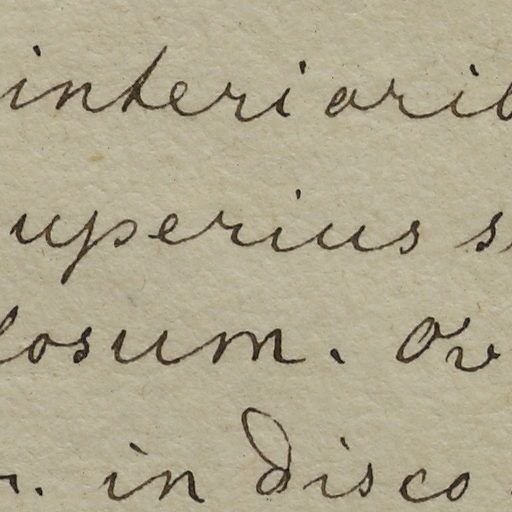 interiorib
uperius s
losum. Ov
r. in disco